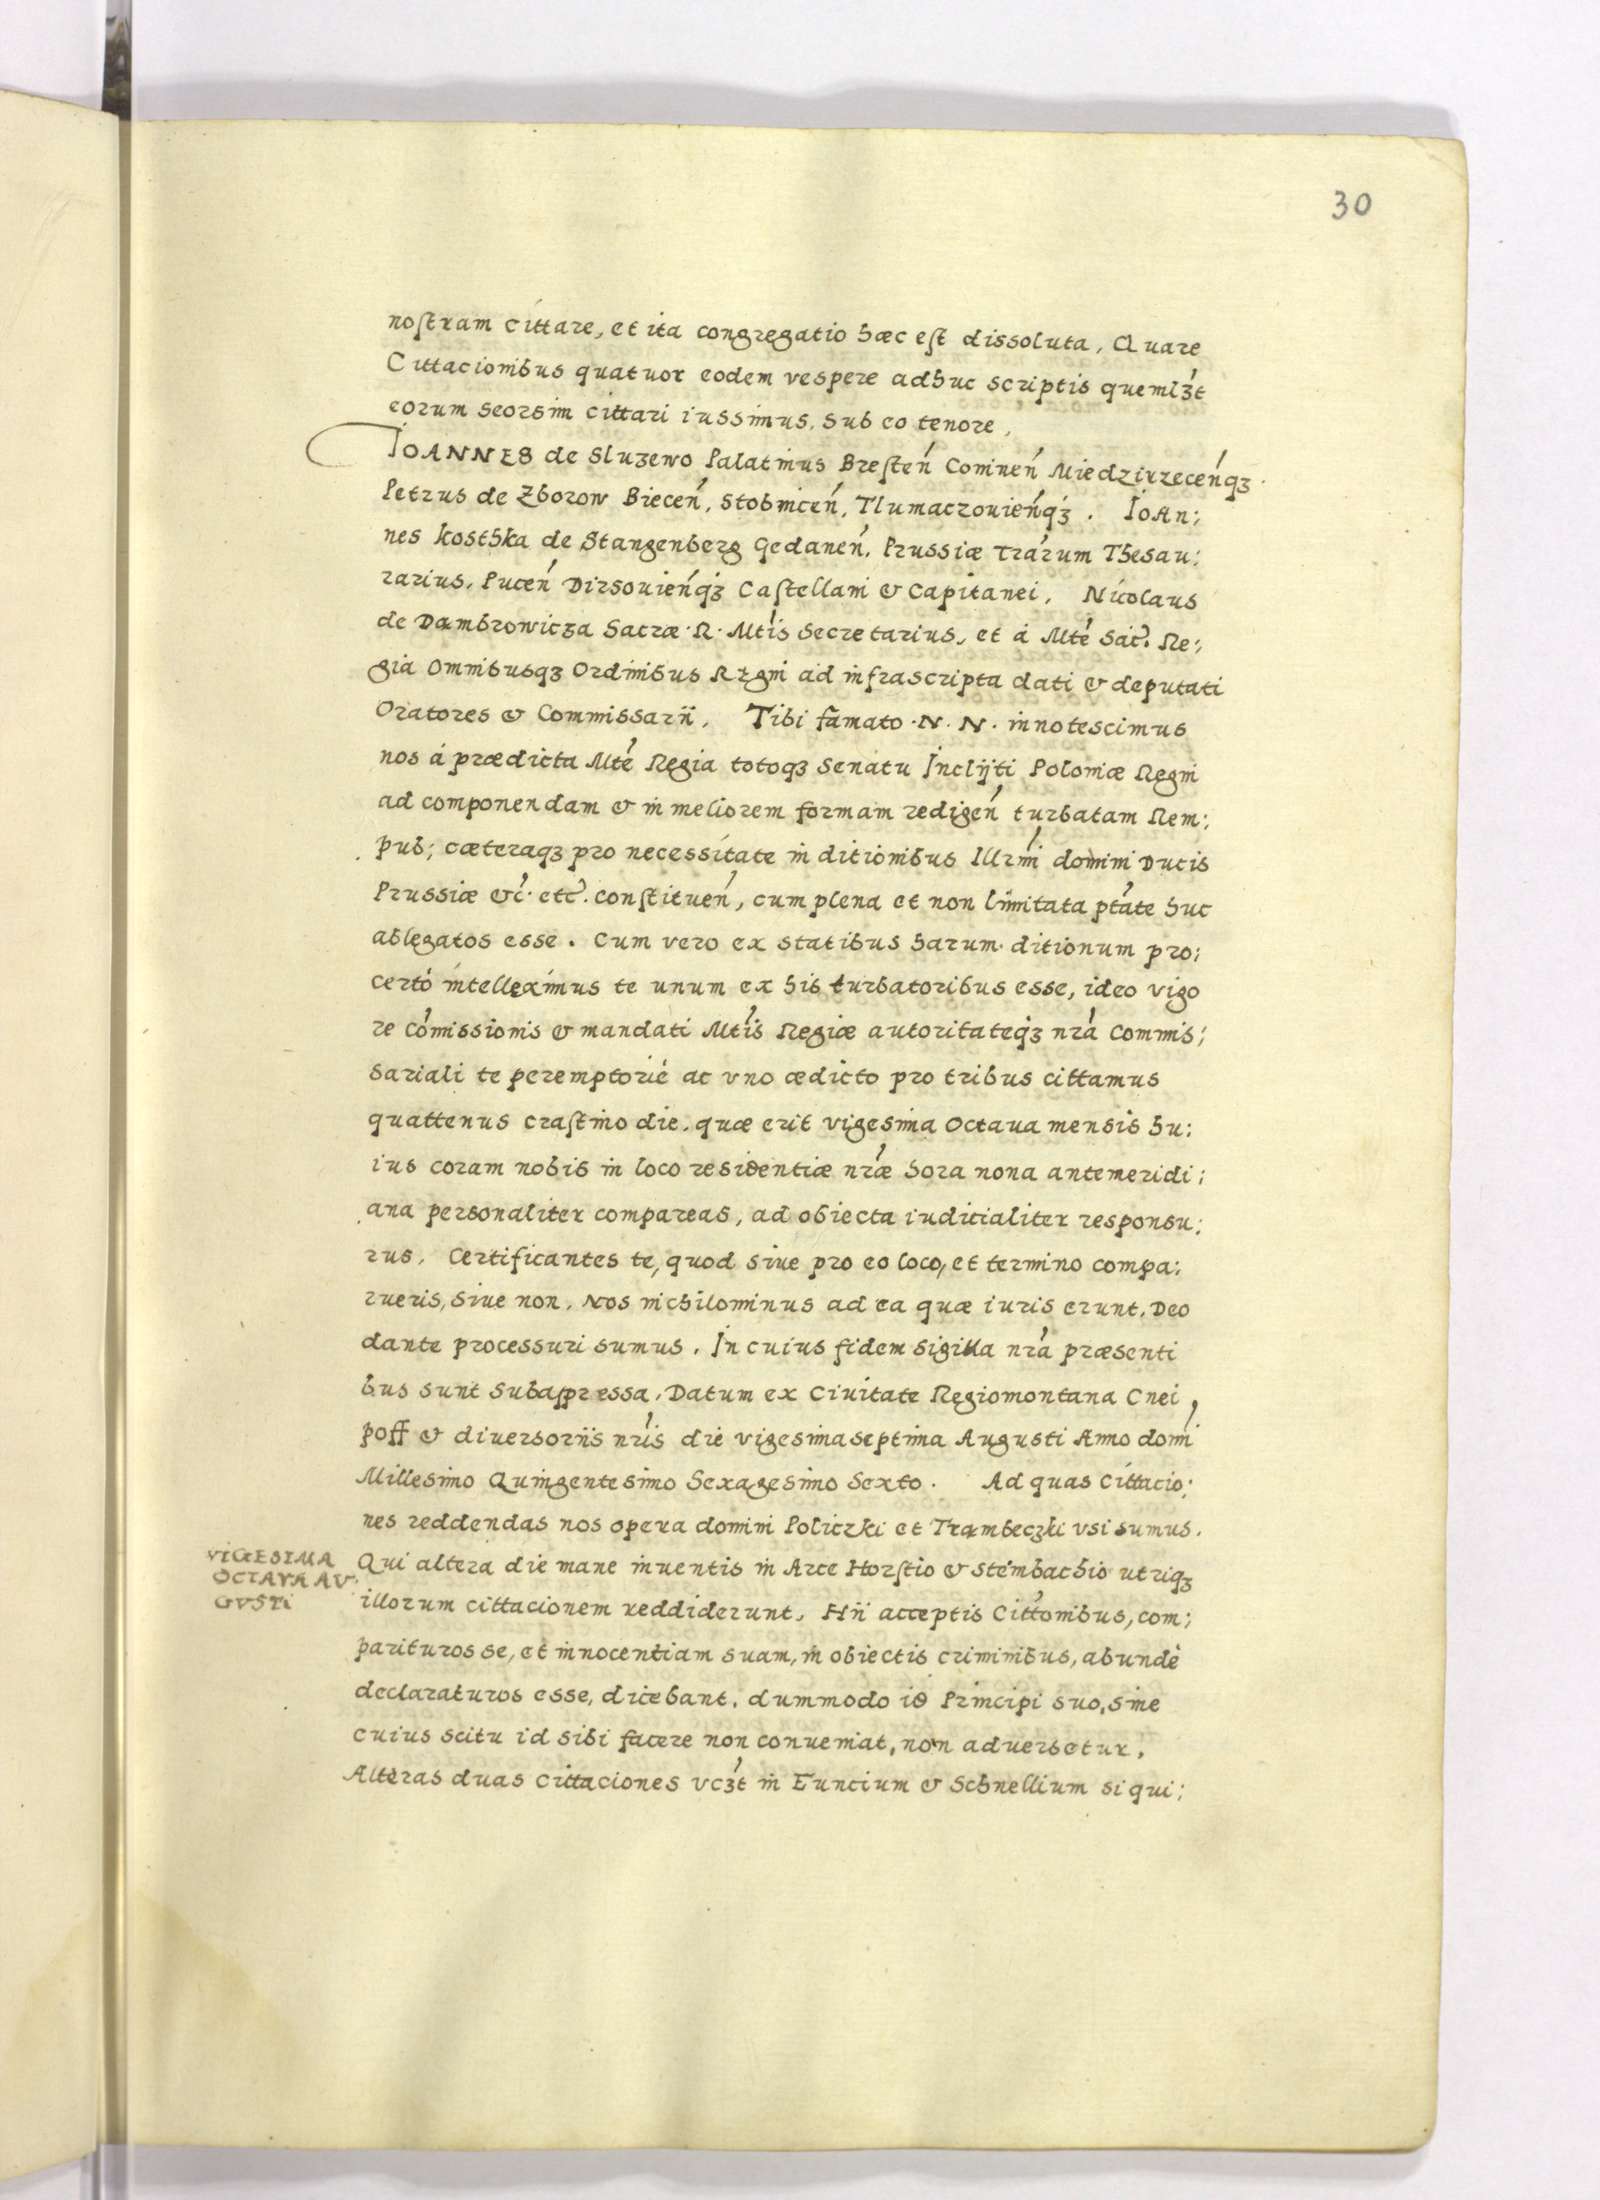 30
nostram cittare, et ita congregatio hæc est dissoluta, Quare
Cittacionibus quatuor eodem vespere adhuc scriptis quemlʒt
eorum seorsim cittari iussimus, sub eo tenore,
IOANNES de Sluzewo Palatinus Bresten̄ Coninen̄ Miedzirzecen̄qʒ
Petrus de Zborow Biecen̄, Stobnicen̄, Tlumaczouien̄qʒ. Ioan;
nes kosthka de Stangenberg Gedanen̄, Prussiæ trarum Thesau;
rarius, Pucen̄ Dirsouien̄qʒ Castellani & Capitanei, Nicolaus
de Dambrowicza Sacræ R. Mtis Secretarius, et á Mte Sac. Re;
gia Omnibusqʒ Ordinibus Regni ad infrascripta dati & deputati
Oratores & Commissarii, Tibi famato N. N. innotescimus
nos á prædicta Mte Regia totoqʒ Senatu Inclÿti Poloniæ Regni
ad componendam & in meliorem formam redigen̄ turbatam Rem;
pub; cæteraqʒ pro necessitate in ditionibus Illrmi domini Ducis
Prussiæ &c. etc. constituen̄, cum plena et non limitata ptate huc
ablegatos esse. Cum vero ex statibus harum ditionum pro;
certó intelleximus te unum ex his turbatoribus esse, ideo vigo
re cōmissionis & mandati Mtis Regiæ autoritateqʒ nra Commis;
sariali te peremptorié ac vno ædicto pro tribus cittamus
quattenus crastino die, quæ erit vigesima Octaua mensis hu;
ius coram nobis in loco residentiæ nræ hora nona antemeridi;
ana personaliter compareas, ad obiecta iudicialiter responsu;
rus, Certificantes te, quod siue pro eo loco, et termino compa;
rueris, siue non, Nos nichilominus ad ea quæ iuris erunt, Deo
dante processuri sumus. In cuius fidem sigilla nra præsenti
bus sunt subappressa, Datum ex Ciuitate Regiomontana Cnei
poff & diuersoriis nris die vigesimaseptima Augusti Anno domi
Millesimo Quingentesimo Sexagesimo Sexto. Ad quas Cittacio;
nes reddendas nos opera domini Policzki et Trambeczki vsi sumus.
VIGESIMA
OCTAVA AV
GVSTI
Qui altera die mane inuentis in Arce Horstio & Steinbachio utriqʒ
illorum cittacionem reddiderunt, Hii acceptis Cittonibus, com;
parituros se, et innocentiam suam, in obiectis criminibus, abundè
declaraturos esse, dicebant, dummodo id Principi suo, sine
cuius scitu id sibi facere non conueniat, non aduersetur,
Alteras duas cittaciones vcʒt in Funcium & Schnellium si qui;